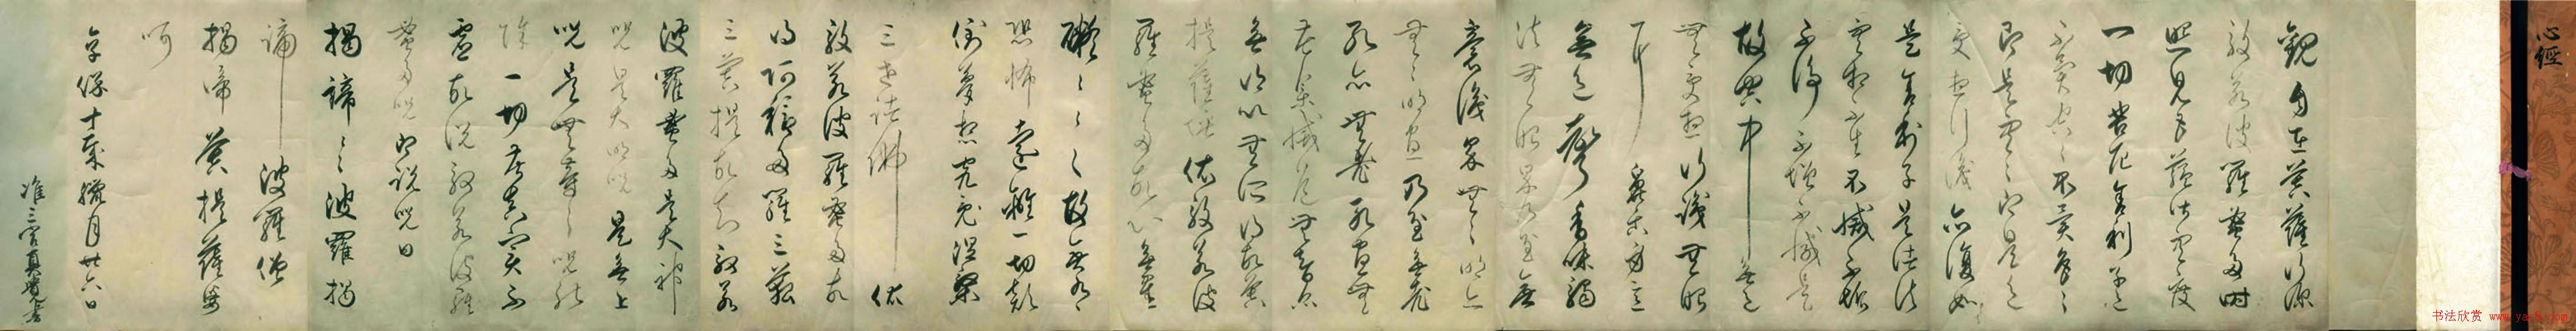 心經
觀自在菩薩行深
般若波羅蜜多時
照見五蘊皆空度
一切苦厄舍利子色
不異空〻不異色〻
即是空〻即是色
受想行識亦復如
是舍利子是諸法
空相不生不滅不垢
不淨不增不減是
故空中無色
無受想行識無眼
耳鼻舌身意
無色聲香味觸
法無眼界乃至無
意識界無〻明亦
無〻明盡乃至無老
死亦無老死盡無
苦集滅道無智亦
無得以無所得故菩
提薩埵依般若波
羅蜜多故心無罣
礙〻〻〻故無有
恐怖遠離一切顛
倒夢想究竟涅槃
三世諸佛依
般若波羅蜜多故
得阿耨多羅三藐
三菩提故知般若
波羅蜜多是大神
咒是大明咒是無上
咒是無等〻咒能
除一切苦真實不
虛故說般若波羅
蜜多咒即說咒曰
揭諦〻〻波羅揭
諦波羅僧
揭諦菩提薩婆
訶
享保十歲臘月廿六日
准三宮真覺書
书法欣赏